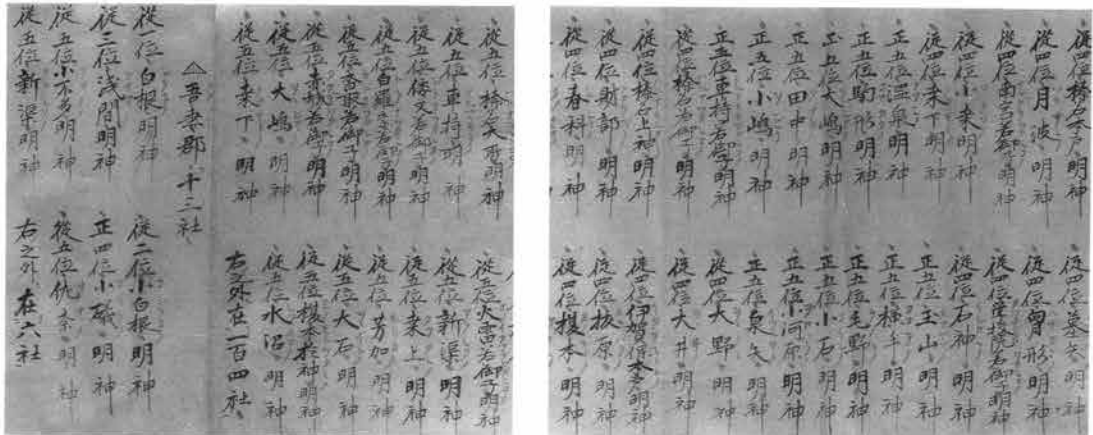 従四位榛名木戸明神 従四位墓矢明神
従四位月波明神 従四位曽形明神
従四位南宮若御子明神 従四位若御子明神
従四位小来明神 従四位石神明神
従四位来下明神 従五位玉山明神
正五位温泉明神 正五位明神
正五位駒形明神 正五位毛野明神
正五位大嶋明神 正五位小石明神
正五位田中明神 正五位小河原明神
正五位小嶋明神 正五位泉矢明神
正五位車持若御子明神 従四位大野明神
従四位榛名若御子明神 従四位大井明神
従四位榛名上神明神 従四位伊賀保木多明神
従四位財部明神 従四位板原明神
従四位春科明神 従四位榎本明神
従五位榛矢所明神 従五位火雷若御子明神
従五位車持明神 従五位新渠明神
従五位倭文若御子明神 従五位来上明神
従五位白羅若御子明神 従五位芳加明神
従五位畜取若御子明神 従五位大石明神
従五位赤城若御子明神 従五位榎本於神明神
従五位大嶋明神 従五位水沼明神
従五位来下明神 右之外在一百四社
△吾妻郡 十三社
従一位白根明神 従二位小白根明神
従三位浅間明神 正四位小礒明神
従五位小不多明神 従五位仇奈明神
従五位新渠明神 右之外在六社